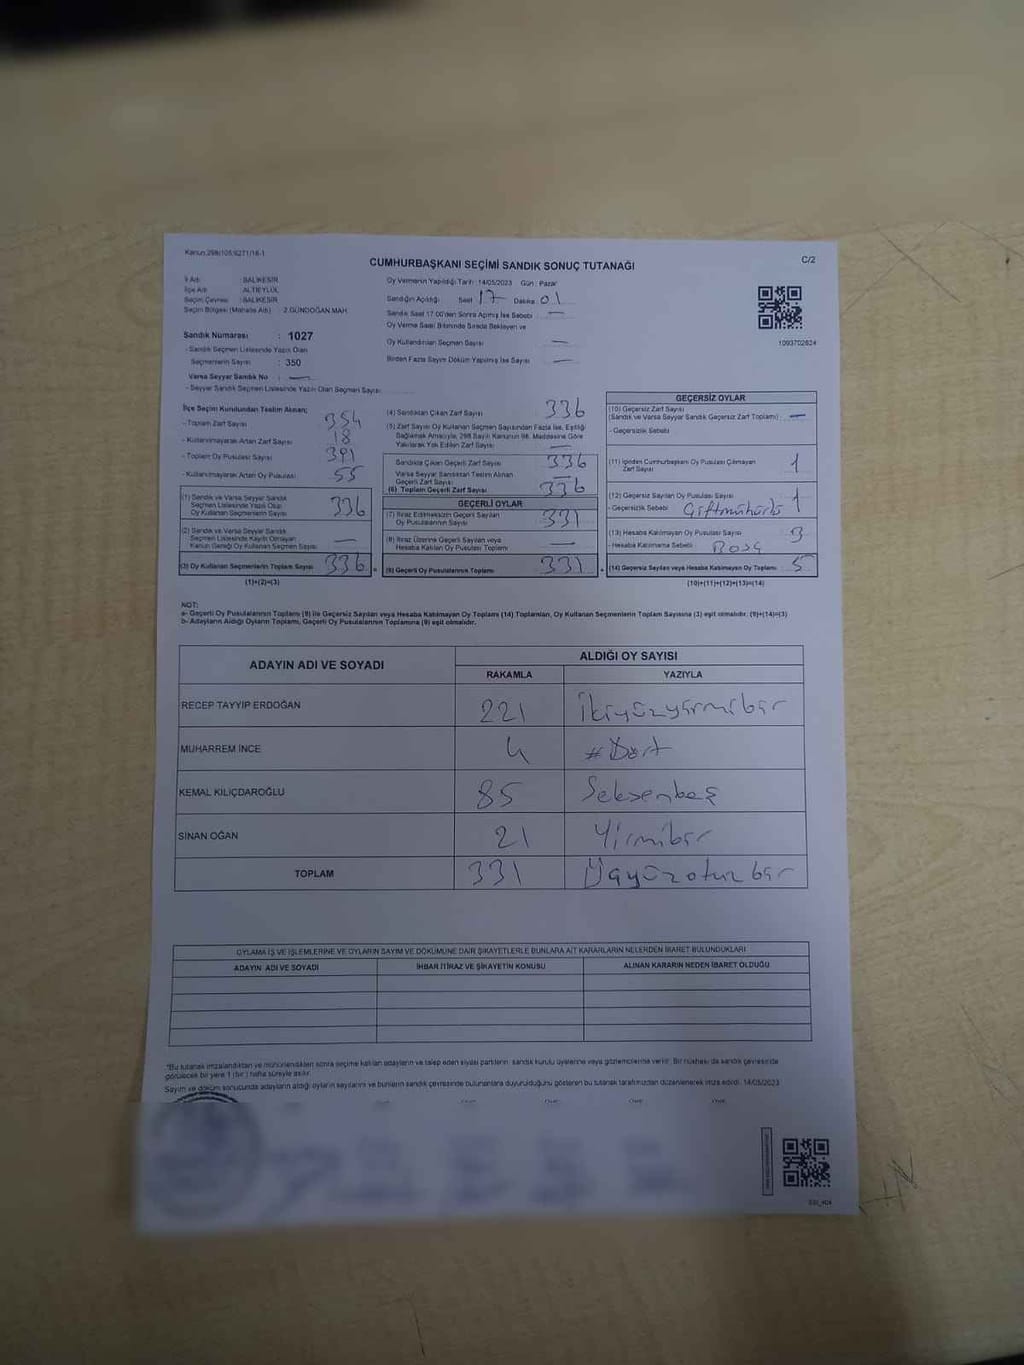 Kanun:298/105;6271/16-1
CUMHURBAŞKANI SEÇİMİ SANDIK SONUÇ TUTANAĞI
C/2
İl Adı : BALIKESİR
İlçe Adı : ALTIEYLÜL
Seçim Çevresi : BALIKESİR
Seçim Bölgesi (Mahalle Adı) : 2.GÜNDOĞAN MAH.
Sandık Numarası : 1027
- Sandık Seçmen Listesinde Yazılı Olan
Seçmenlerin Sayısı : 350
Varsa Seyyar Sandık No : —
- Seyyar Sandık Seçmen Listesinde Yazılı Olan Seçmen Sayısı:
Oy Vermenin Yapıldığı Tarih: 14/05/2023 Gün : Pazar
Sandığın Açıldığı: Saat 17 Dakika 01
Sandık Saat 17.00'den Sonra Açılmış İse Sebebi : —
Oy Verme Saati Bitiminde Sırada Bekleyen ve
Oy Kullandırılan Seçmen Sayısı —
Birden Fazla Sayım Döküm Yapılmış İse Sayısı —
1093702824
İlçe Seçim Kurulundan Teslim Alınan;
- Toplam Zarf Sayısı : 354
- Kullanılmayarak Artan Zarf Sayısı : 18
- Toplam Oy Pusulası Sayısı : 391
- Kullanılmayarak Artan Oy Pusulası : 55
(1) Sandık ve Varsa Seyyar Sandık
Seçmen Listesinde Yazılı Olup
Oy Kullanan Seçmenlerin Sayısı : 336
(2) Sandık ve Varsa Seyyar Sandık
Seçmen Listesinde Kayıtlı Olmayan
Kanun Gereği Oy Kullanan Seçmen Sayısı : —
(3) Oy Kullanan Seçmenlerin Toplam Sayısı : 336
(1)+(2)=(3)
(4) Sandıktan Çıkan Zarf Sayısı : 336
(5) Zarf Sayısı Oy Kullanan Seçmen Sayısından Fazla İse, Eşitliği
Sağlamak Amacıyla; 298 Sayılı Kanunun 98. Maddesine Göre
Yakılarak Yok Edilen Zarf Sayısı : —
Sandıkta Çıkan Geçerli Zarf Sayısı : 336
Varsa Seyyar Sandıktan Teslim Alınan
Geçerli Zarf Sayısı : —
(6) Toplam Geçerli Zarf Sayısı : 336
GEÇERLİ OYLAR
(7) İtiraz Edilmeksizin Geçerli Sayılan
Oy Pusulalarının Sayısı : 331
(8) İtiraz Üzerine Geçerli Sayılan veya
Hesaba Katılan Oy Pusulası Toplamı : —
(9) Geçerli Oy Pusulalarının Toplamı : 331
GEÇERSİZ OYLAR
(10) Geçersiz Zarf Sayısı
(Sandık ve Varsa Seyyar Sandık Geçersiz Zarf Toplamı) : —
- Geçersizlik Sebebi :
(11) İçinden Cumhurbaşkanı Oy Pusulası Çıkmayan
Zarf Sayısı : 1
(12) Geçersiz Sayılan Oy Pusulası Sayısı : 1
- Geçersizlik Sebebi : Çiftmühürlü
(13) Hesaba Katılmayan Oy Pusulası Sayısı : 3
- Hesaba Katılmama Sebebi : Boş
(14) Geçersiz Sayılan veya Hesaba Katılmayan Oy Toplamı : 5
(10)+(11)+(12)+(13)=(14)
NOT:
a- Geçerli Oy Pusulalarının Toplamı (9) ile Geçersiz Sayılan veya Hesaba Katılmayan Oy Toplamı (14) Toplamları, Oy Kullanan Seçmenlerin Toplam Sayısına (3) eşit olmalıdır. (9)+(14)=(3)
b- Adayların Aldığı Oyların Toplamı, Geçerli Oy Pusulalarının Toplamına (9) eşit olmalıdır.
ADAYIN ADI VE SOYADI
ALDIĞI OY SAYISI
RAKAMLA YAZIYLA
RECEP TAYYİP ERDOĞAN 221 İkiyüzyirmibir
MUHARREM İNCE 4 Dört
KEMAL KILIÇDAROĞLU 85 Seksenbeş
SİNAN OĞAN 21 Yirmibir
TOPLAM 331 Üçyüzotuzbir
OYLAMA İŞ VE İŞLEMLERİNE VE OYLARIN SAYIM VE DÖKÜMÜNE DAİR ŞİKAYETLERLE BUNLARA AİT KARARLARIN NELERDEN İBARET BULUNDUKLARI
ADAYIN ADI VE SOYADI İHBAR İTİRAZ VE ŞİKAYETİN KONUSU ALINAN KARARIN NEDEN İBARET OLDUĞU
*Bu tutanak imzalandıktan ve mühürlendikten sonra seçime katılan adayların ve talep eden siyasi partilerin sandık kurulu üyelerine veya gözlemcilerine verilir. Bir nüshası da sandık çevresinde
görülecek bir yere 1 (bir) hafta süreyle asılır.
Sayım ve döküm sonucunda adayların aldığı oyların sayılarını ve bunların sandık çevresinde bulunanlara duyurulduğunu gösteren bu tutanak tarafımızdan düzenlenerek imza edildi. 14/05/2023